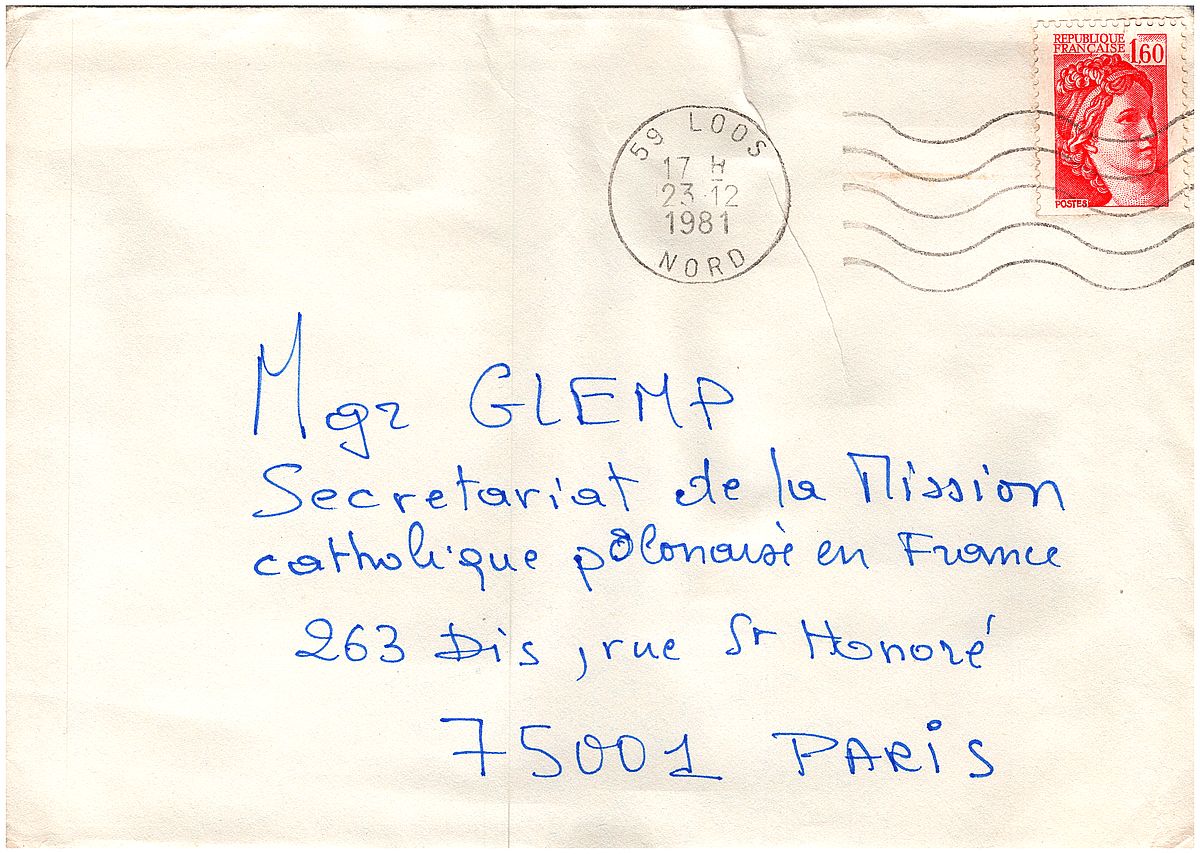 REPUBLIQUE
FRANÇAISE 1,60
POSTES
59 LOOS
17 H
23-12
1981
NORD
Mgr GLEMP
Secretariat de la Mission
catholique polonaise en France
263 Bis, rue St Honoré
75001 PARIS